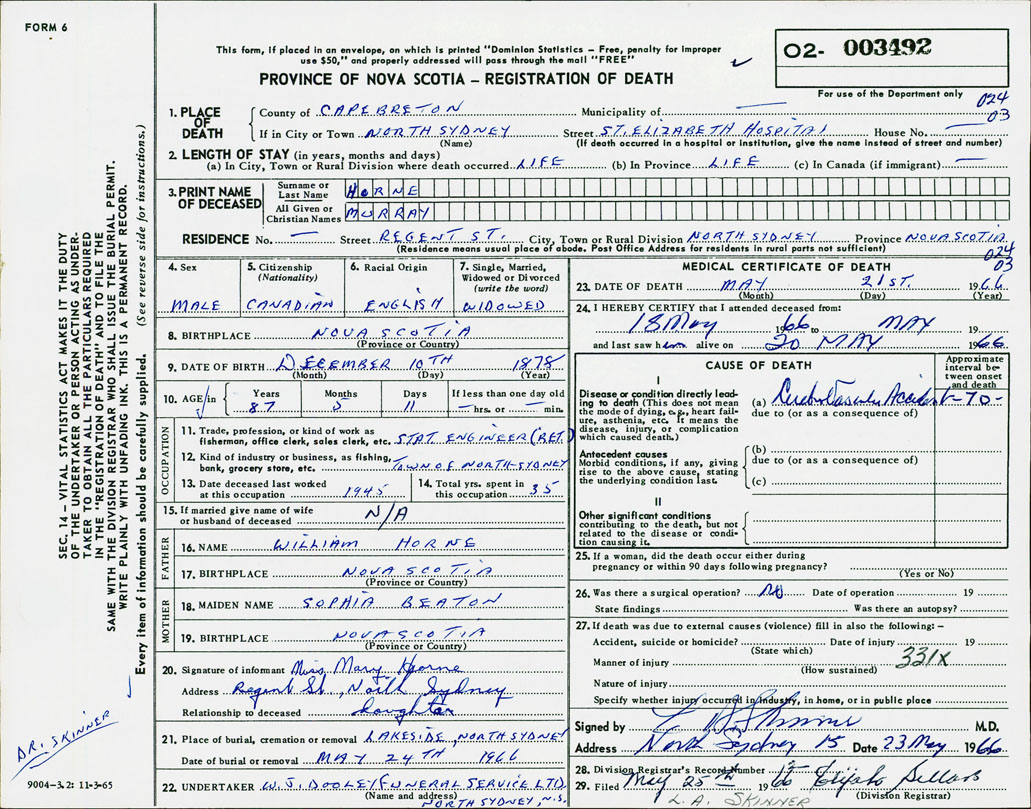 FORM 6
This form, if placed in an envelope, on which is printed "Dominion Statistics – Free, penalty for improper
use $50," and properly addressed will pass through the mail "FREE"
PROVINCE OF NOVA SCOTIA – REGISTRATION OF DEATH
O2- 003492
For use of the Department only
024
03
1. PLACE OF DEATH County of CAPE BRETON Municipality of —
If in City or Town NORTH SYDNEY Street ST. ELIZABETH HOSPITAL House No. —
(Name) (If death occurred in a hospital or institution, give the name instead of street and number)
2. LENGTH OF STAY (in years, months and days)
(a) In City, Town or Rural Division where death occurred LIFE (b) In Province LIFE (c) In Canada (if immigrant) —
3. PRINT NAME OF DECEASED Surname or Last Name HORNE
All Given or Christian Names MURRAY
RESIDENCE No. — Street REGENT ST. City, Town or Rural Division NORTH SYDNEY Province NOVA SCOTIA
(Residence means usual place of abode. Post Office Address for residents in rural parts not sufficient)
024
03
4. Sex MALE
5. Citizenship (Nationality) CANADIAN
6. Racial Origin ENGLISH
7. Single, Married, Widowed or Divorced (write the word) WIDOWED
8. BIRTHPLACE NOVA SCOTIA
(Province or Country)
9. DATE OF BIRTH DECEMBER 10TH 1878
(Month) (Day) (Year)
10. AGE in Years Months Days If less than one day old
87 5 11 – hrs. or – min.
OCCUPATION
11. Trade, profession, or kind of work as
fisherman, office clerk, sales clerk, etc. STAT. ENGINEER (RET.)
12. Kind of industry or business, as fishing,
bank, grocery store, etc. TOWN OF NORTH SYDNEY
13. Date deceased last worked at this occupation 1945
14. Total yrs. spent in this occupation 35
15. If married give name of wife
or husband of deceased N/A
FATHER
16. NAME WILLIAM HORNE
17. BIRTHPLACE NOVA SCOTIA
(Province or Country)
MOTHER
18. MAIDEN NAME SOPHIA BEATON
19. BIRTHPLACE NOVA SCOTIA
(Province or Country)
20. Signature of informant Miss Mary Horne
Address Regent St., North Sydney
Relationship to deceased daughter
21. Place of burial, cremation or removal LAKESIDE, NORTH SYDNEY
Date of burial or removal MAY 24TH 1966
22. UNDERTAKER W. J. DOOLEY FUNERAL SERVICE LTD.
(Name and address)
NORTH SYDNEY, N.S.
MEDICAL CERTIFICATE OF DEATH
23. DATE OF DEATH MAY 21ST. 1966
(Month) (Day) (Year)
24. I HEREBY CERTIFY that I attended deceased from:
18 May 1966 to MAY 19
and last saw him alive on 20 MAY 1966
CAUSE OF DEATH
Approximate interval between onset and death
I
Disease or condition directly leading to death (This does not mean the mode of dying, e.g., heart failure, asthenia, etc. It means the disease, injury, or complication which caused death.)
(a) Accident
due to (or as a consequence of)
Antecedent causes
Morbid conditions, if any, giving rise to the above cause, stating the underlying condition last.
(b)
due to (or as a consequence of)
(c)
II
Other significant conditions contributing to the death, but not related to the disease or condition causing it.
25. If a woman, did the death occur either during
pregnancy or within 90 days following pregnancy?
(Yes or No)
26. Was there a surgical operation? No Date of operation 19
State findings Was there an autopsy?
27. If death was due to external causes (violence) fill in also the following: –
Accident, suicide or homicide? Date of injury 19
(State which)
Manner of injury 331X
(How sustained)
Nature of injury
Specify whether injury occurred in industry, in home, or in public place
Signed by M.D.
Address North Sydney Date 23 May 1966
28. Division Registrar's Record Number
29. Filed May 25th 1966 Elijah Sellars
(Division Registrar)
L.A. SKINNER
SEC. 14 – VITAL STATISTICS ACT MAKES IT THE DUTY
OF THE UNDERTAKER OR PERSON ACTING AS UNDER-
TAKER TO OBTAIN ALL THE PARTICULARS REQUIRED
IN THE "REGISTRATION OF DEATH" AND TO FILE THE
SAME WITH THE DIVISION REGISTRAR WHO SHALL ISSUE THE BURIAL PERMIT.
WRITE PLAINLY WITH UNFADING INK. THIS IS A PERMANENT RECORD.
Every item of information should be carefully supplied. (See reverse side for instructions.)
DR. SKINNER
9004-3.2: 11-3-65